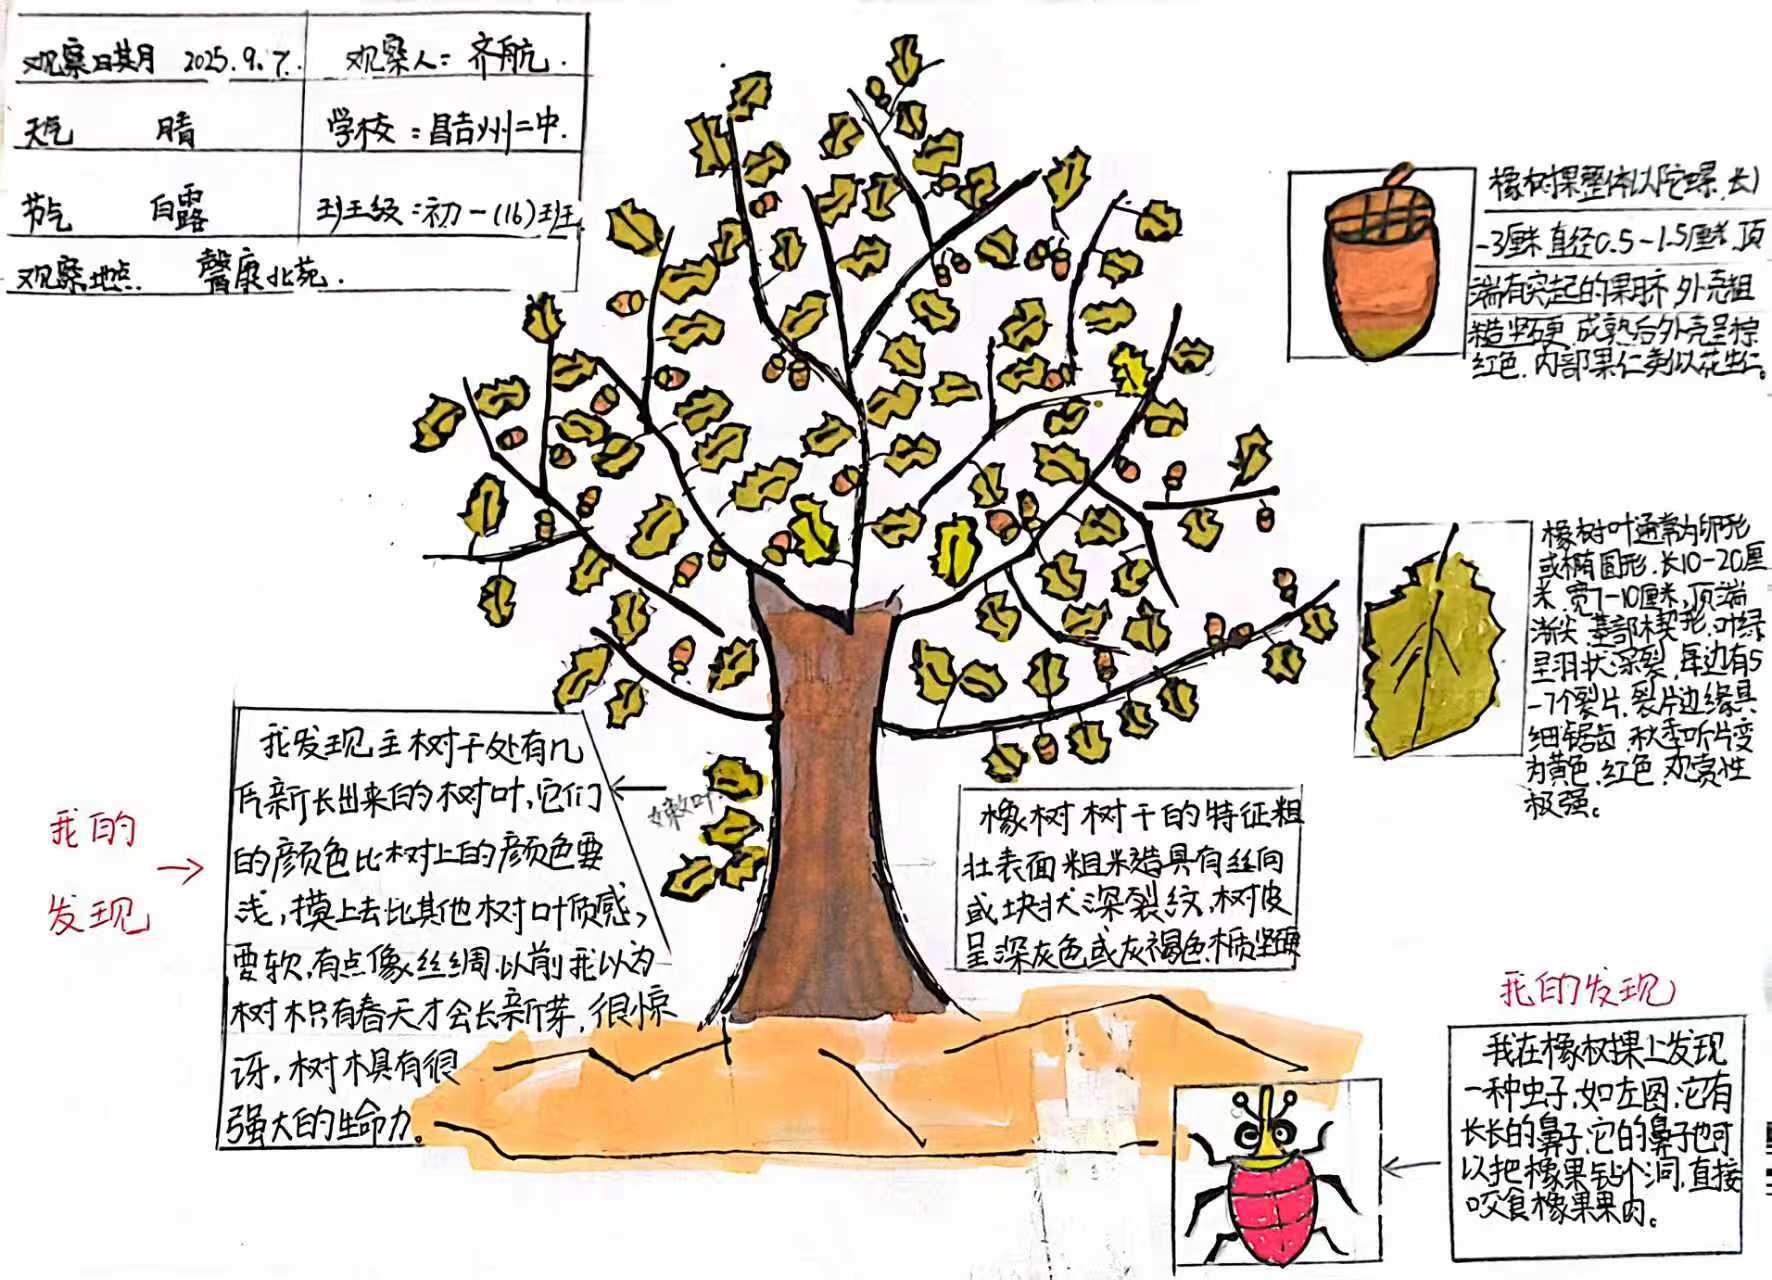 观察日期 2025.9.7.
观察人：齐航.
天气 晴
学校：昌吉州二中.
节气 白露
班级：初一(16)班.
观察地点. 馨康北苑.
橡树果整体似陀螺.长1
-3厘米直径0.5-1.5厘米.顶
端有突起的果脐.外壳粗
糙坚硬.成熟后外壳呈棕
红色.内部果仁类似花生仁。
橡树叶通常为卵形
或椭圆形.长10-20厘
米.宽7-10厘米.顶端
渐尖.基部楔形.叶缘
呈羽状深裂.每边有5
-7个裂片.裂片边缘具
细锯齿.秋季叶片变
为黄色.红色.观赏性
极强。
我的
发现
我发现主树干处有几
片新长出来的树叶,它们
的颜色比树上的颜色要
浅,摸上去比其他树叶质感,
要软,有点像丝绸.以前我以为
树木只有春天才会长新芽,很惊
讶,树木具有很
强大的生命力。
嫩叶
橡树树干的特征粗
壮表面粗糙具有丝向
或块状深裂纹,树皮
呈深灰色或灰褐色.木质坚硬
我的发现
我在橡树果上发现
一种虫子.如左图.它有
长长的鼻子.它的鼻子也可
以把橡果钻个洞.直接
咬食橡果果肉。